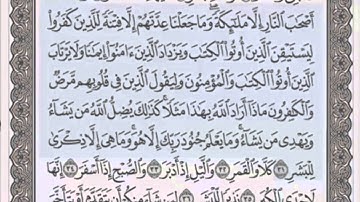 أَصْحَٰبَ ٱلنَّارِ إِلَّا مَلَٰٓئِكَةً وَمَا جَعَلْنَا عِدَّتَهُمْ إِلَّا فِتْنَةً لِّلَّذِينَ كَفَرُوا۟
لِيَسْتَيْقِنَ ٱلَّذِينَ أُوتُوا۟ ٱلْكِتَٰبَ وَيَزْدَادَ ٱلَّذِينَ ءَامَنُوٓا۟ إِيمَٰنًا وَلَا يَرْتَابَ
ٱلَّذِينَ أُوتُوا۟ ٱلْكِتَٰبَ وَٱلْمُؤْمِنُونَ وَلِيَقُولَ ٱلَّذِينَ فِى قُلُوبِهِم مَّرَضٌ
وَٱلْكَٰفِرُونَ مَاذَآ أَرَادَ ٱللَّهُ بِهَٰذَا مَثَلًا كَذَٰلِكَ يُضِلُّ ٱللَّهُ مَن يَشَآءُ
وَيَهْدِى مَن يَشَآءُ وَمَا يَعْلَمُ جُنُودَ رَبِّكَ إِلَّا هُوَ وَمَا هِىَ إِلَّا ذِكْرَىٰ
لِلْبَشَرِ ٣١ كَلَّا وَٱلْقَمَرِ ٣٢ وَٱلَّيْلِ إِذْ أَدْبَرَ ٣٣ وَٱلصُّبْحِ إِذَآ أَسْفَرَ ٣٤ إِنَّهَا
لَإِحْدَى ٱلْكُبَرِ ٣٥ نَذِيرًا لِّلْبَشَرِ ٣٦ لِمَن شَآءَ مِنكُمْ أَن يَتَقَدَّمَ أَوْ يَتَأَخَّرَ